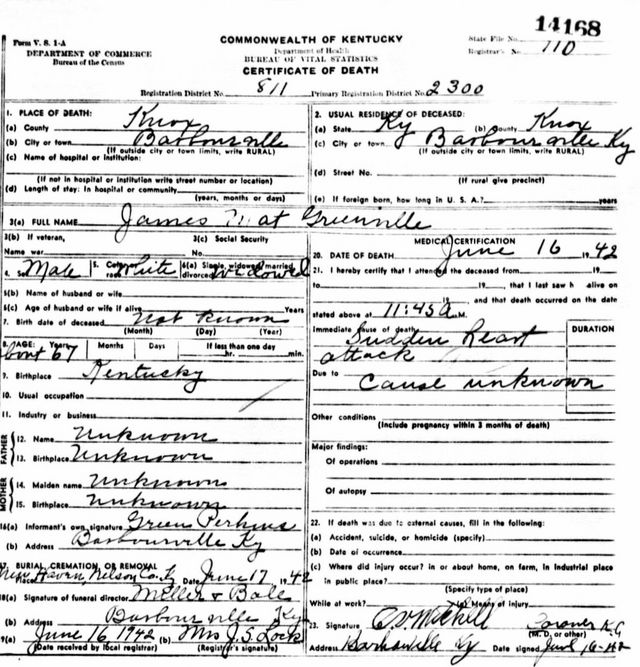 14168
Form V. S. 1-A
DEPARTMENT OF COMMERCE
Bureau of the Census
COMMONWEALTH OF KENTUCKY
Department of Health
BUREAU OF VITAL STATISTICS
CERTIFICATE OF DEATH
State File No.
Registrar's No. 110
Registration District No. 811 Primary Registration District No. 2300
1. PLACE OF DEATH:
(a) County Knox
(b) City or town Barbourville
(If outside city or town limits, write RURAL)
(c) Name of hospital or institution:
(If not in hospital or institution write street number or location)
(d) Length of stay: In hospital or community
(years, months or days)
2. USUAL RESIDENCE OF DECEASED:
(a) State Ky (b) County Knox
(c) City or town Barbourville Ky
(If outside city or town limits, write RURAL)
(d) Street No.
(If rural give precinct)
(e) If foreign born, how long in U. S. A.? years
3(a) FULL NAME James Mat Greenville
3(b) If veteran,
Name war
3(c) Social Security
4. Sex Male 5. Color or race White 6(a) Single, widowed, married, divorced Widowed
6(b) Name of husband or wife
6(c) Age of husband or wife if alive Years
7. Birth date of deceased Not Known
(Month) (Day) (Year)
8. AGE: Years Months Days If less than one day
about 67 hr. min.
9. Birthplace Kentucky
10. Usual occupation
11. Industry or business
FATHER
12. Name Unknown
13. Birthplace Unknown
MOTHER
14. Maiden name Unknown
15. Birthplace Unknown
16(a) Informant's own signature Green Perkins
(b) Address Barbourville Ky
17. BURIAL, CREMATION, OR REMOVAL
Place New Haven Nelson Co. Ky Date June 17 1942
18(a) Signature of funeral director Miller & Bale
(b) Address Barbourville Ky
19(a) June 16, 1942 (b) Mrs J. S. Lock
(Date received by local registrar) (Registrar's signature)
MEDICAL CERTIFICATION
20. DATE OF DEATH June 16 1942
21. I hereby certify that I attended the deceased from 19
to 19 , that I last saw h alive on
19 , and that death occurred on the date
stated above at 11:45 a M.
Immediate cause of death
Sudden heart
attack
DURATION
Due to Cause unknown
Other conditions
(Include pregnancy within 3 months of death)
Major findings:
Of operations
Of autopsy
22. If death was due to external causes, fill in the following:
(a) Accident, suicide, or homicide (specify)
(b) Date of occurrence
(c) Where did injury occur? in or about home, on farm, in industrial place
in public place?
(Specify type of place)
While at work? (e) Means of injury
23. Signature Coroner K.C.
(M. D. or other)
Address Barbourville Ky Date signed June 16-42